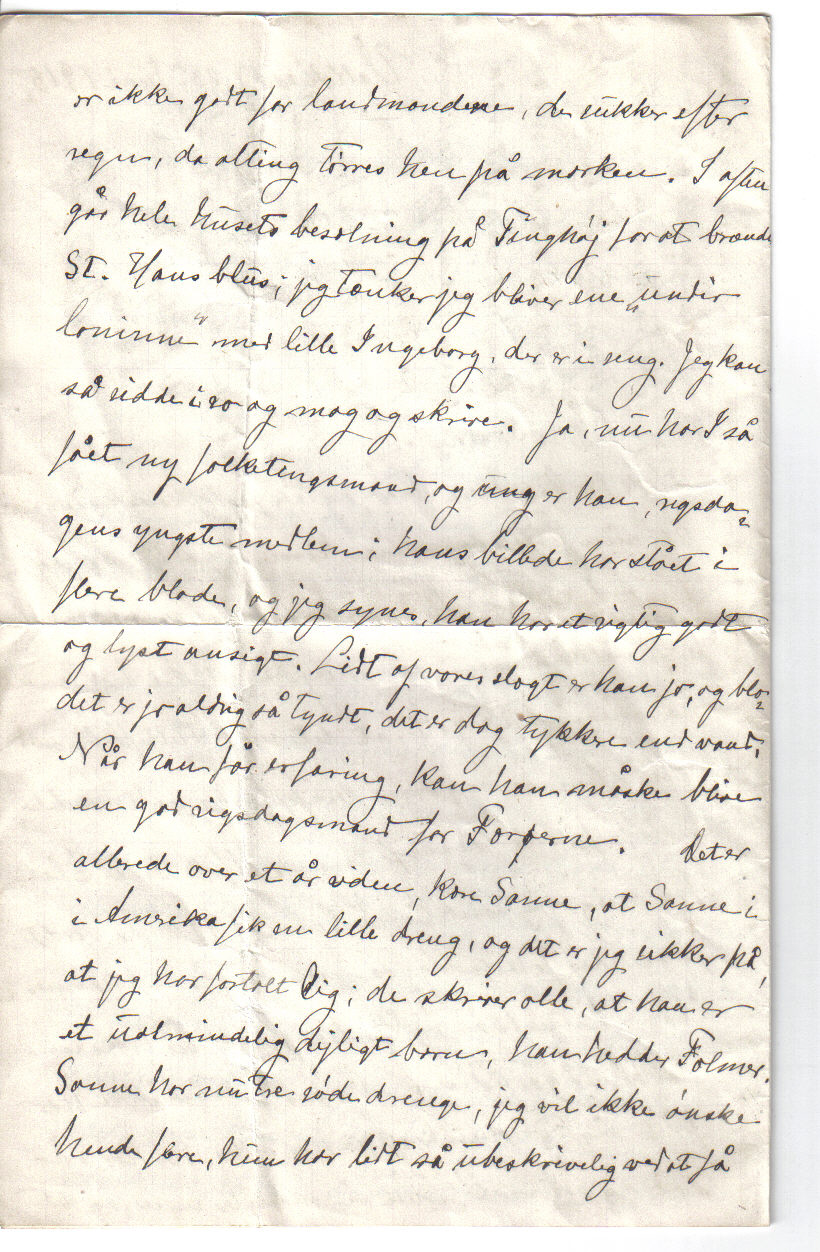 er ikke godt for landmændene, de sukker efter
regn, da alting tørres hen på marken. I aften
går hele husets besætning på Tinghøj for at brænde
St. Hans blus; jeg tænker jeg bliver ene "undir
loninne" med lille Ingeborg, der er i seng. Jeg kan
så sidde i ro og mag og skrive. Ja, nu har I så
fået ny folketingsmand, og ung er han, rigsda=
gens yngste medlem; hans billede har stået i
flere blade, og jeg synes, han har et rigtig godt
og lyst ansigt. Lidt af vores slægt er han jo, og blo=
det er jo aldrig så tyndt, det er dog tykkere end vand.
Når han får erfaring, kan han måske blive
en god rigsdagsmand for Færøerne. Det er
allerede over et år siden, kære Sanne, at Sanne i
i Amerika fik en lille dreng, og det er jeg sikker på,
at jeg har fortalt Dig; de skriver alle, at han er
et ualmindelig dejligt barn, han hedder Folmer.
Sanne har nu tre søde drenge, jeg vil ikke ønske
hende flere, hun har lidt så ubeskrivelig ved at få